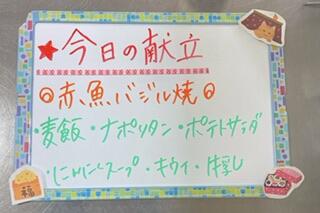 ★今日の献立
◎赤魚バジル焼◎
・麦飯・ナポリタン・ポテトサラダ
・にんにくスープ・キウイ・牛乳
福